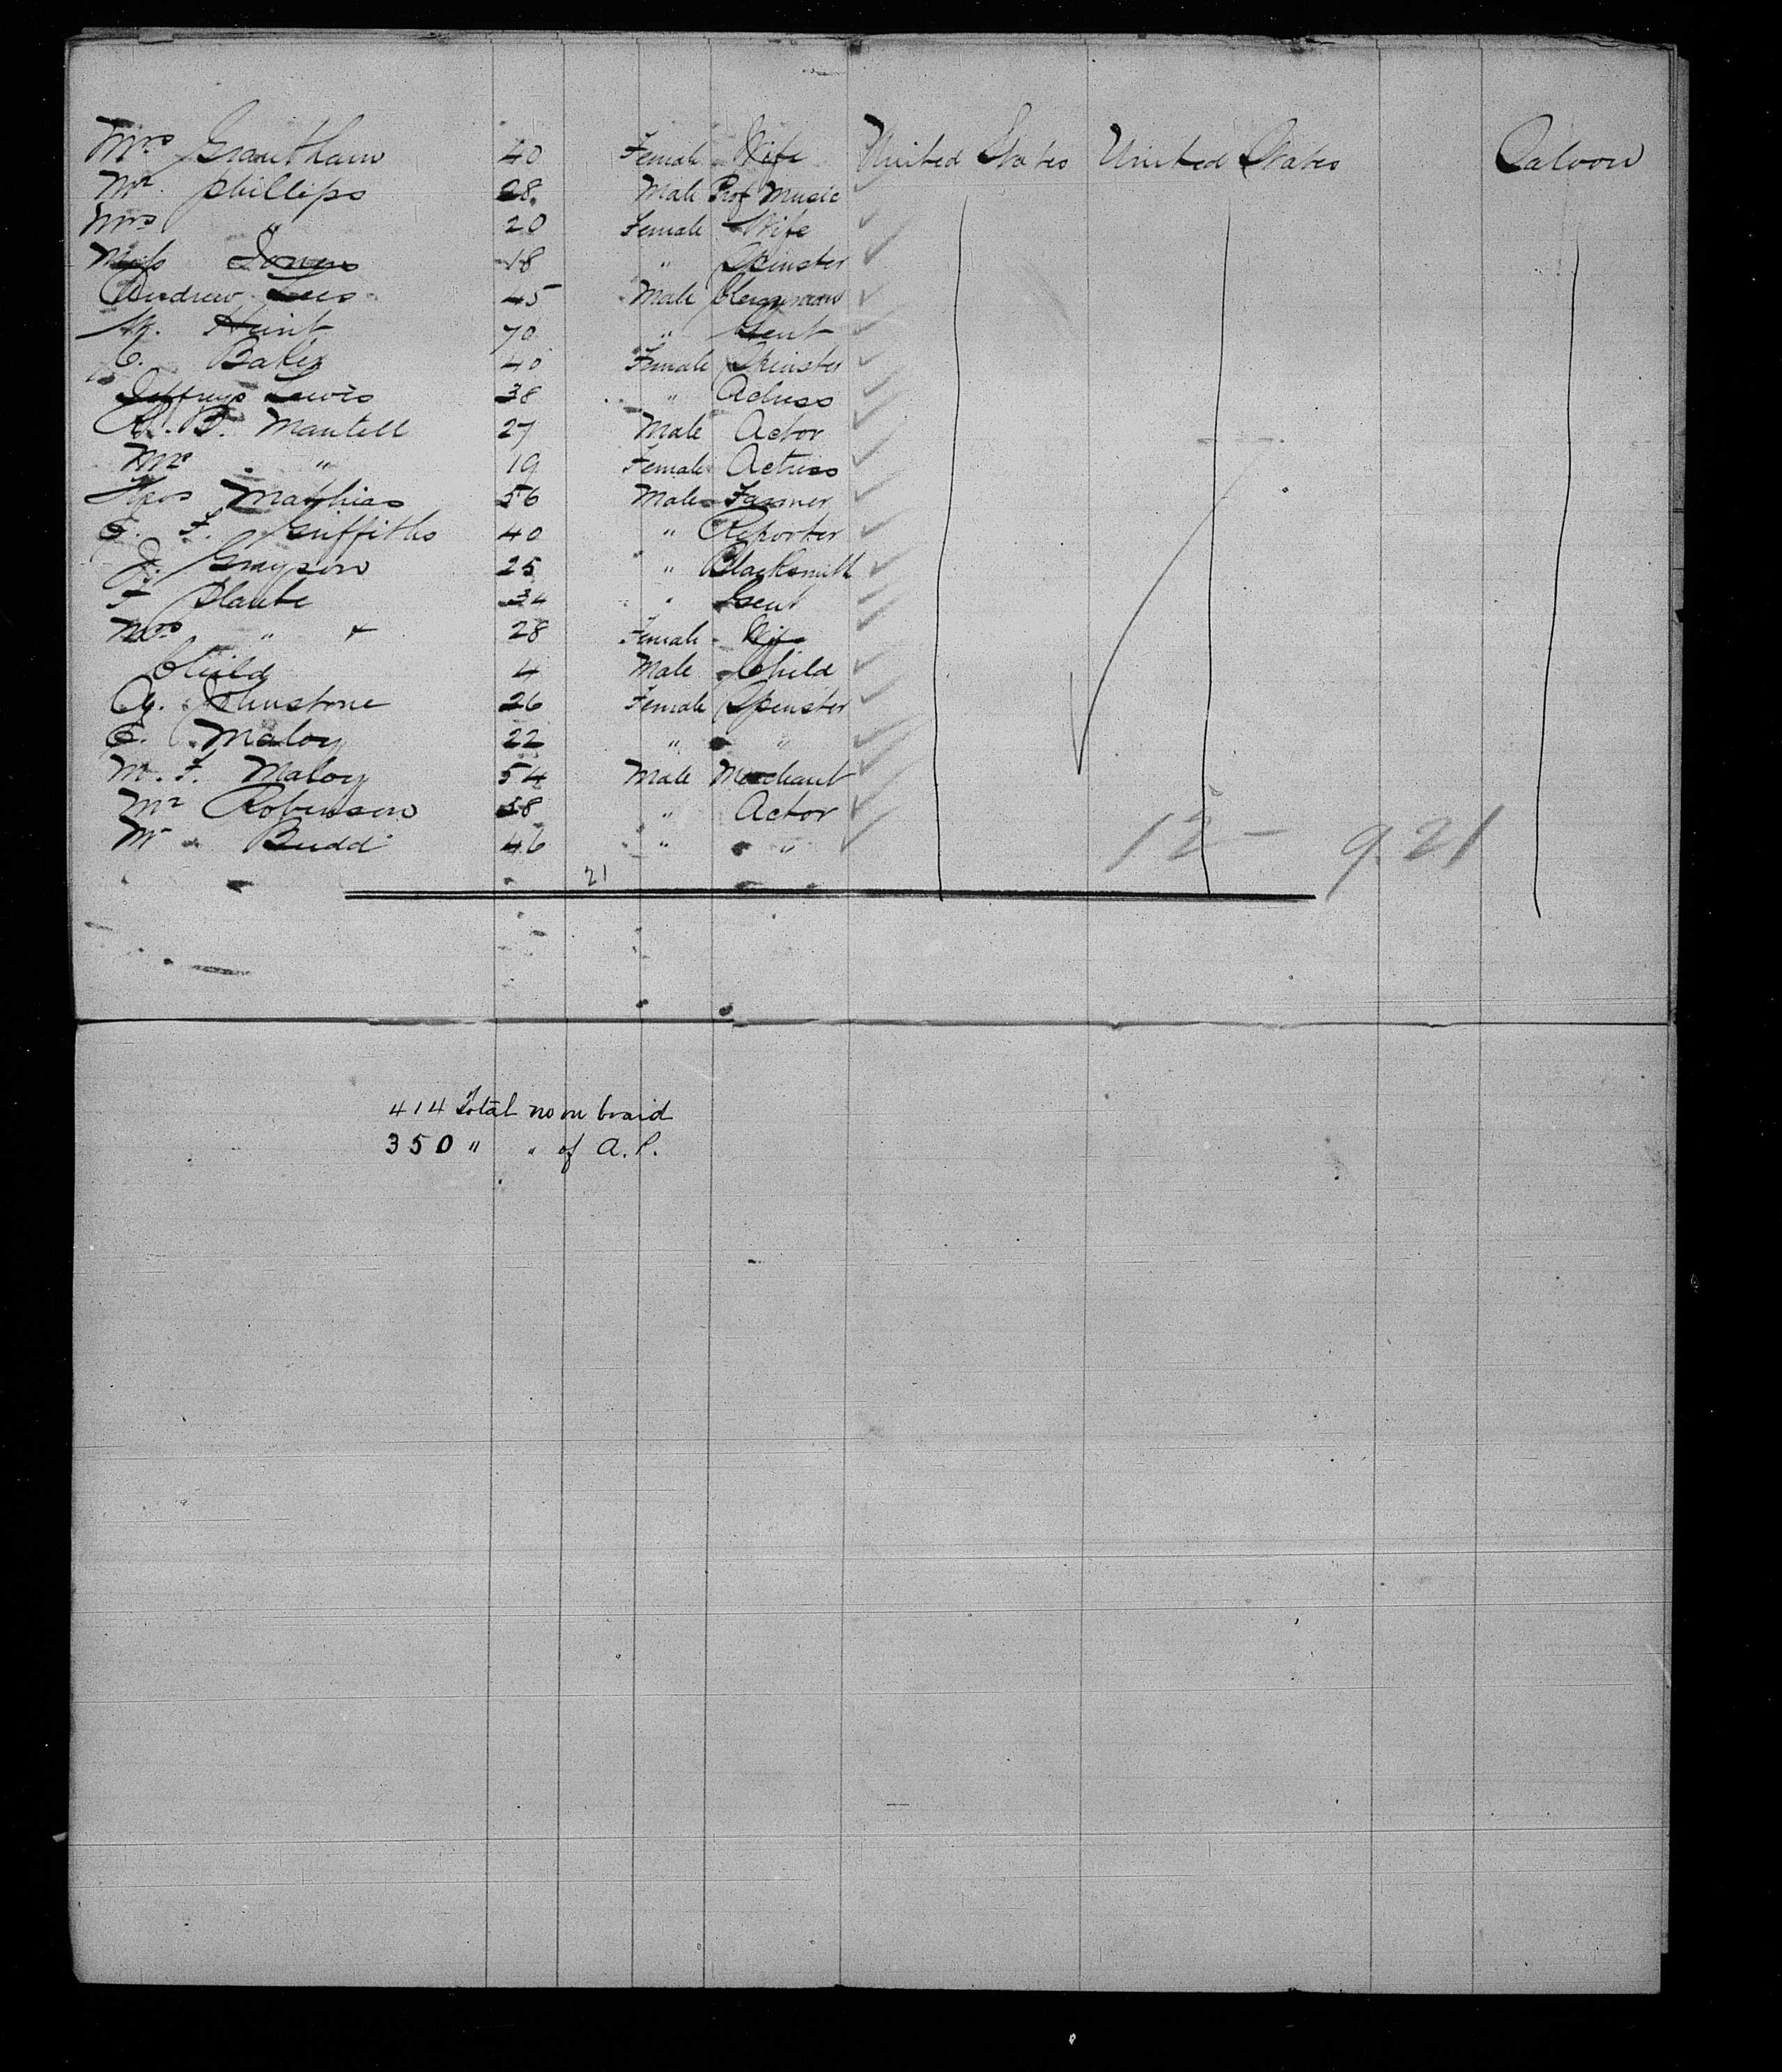 Mrs Grantham 40 Female Wife United States United States Saloon
Mr. Phillips 28 Male Prof Music
Mrs " 20 Female Wife
Miss Jones 18 " Spinster
Andrew Lees 45 Male Clergyman
Hunt 70 " Gent
C. Baker 40 Female Spinster
Jeffreys Lewis 38 " Actress
R. B. Mantell 27 Male Actor
Mrs " 19 Female Actress
Thos Matthias 56 Male Farmer
G. F. Griffiths 40 " Reporter
J. Grayson 25 " Blacksmith
F Plante 34 " Gent
Mrs " + 28 Female Wife
Child 4 Male Child
Ag. Johnstone 26 Female Spinster
C. Maloy 22 " "
M. F. Maloy 54 Male Merchant
Mr Robinson 38 " Actor
Mr Budd 46 " "
12 - 9. 21
21
414 Total no on board
350 " " of A. P.